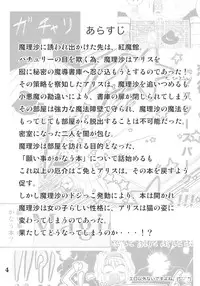 ガチャリ
あらすじ
魔理沙に誘われ出かけた先は、紅魔館。
パチュリーの目を欺く為、魔理沙はアリスを
囮に秘密の魔導書庫へ忍び込もうとするのであった!
その策略を察知したアリスは、魔理沙を追いつめるも
小悪魔の勘違いにより、書庫の扉が閉じられてしまう。
その部屋は強力な魔法障壁で守られ、魔理沙の魔法を
もってしても部屋から出ることができないのであった。
密室になった二人を開か包む。
魔理沙は部屋の目的であった、
『願い事がかなう本』について話始めるも
これ以上の厄介はご免とアリスは、その本を戻すよう
促す。
しかし魔理沙のドジっこ発動により、本は開かれ
魔理沙は女の子らしい性格に、アリスは猫の姿に
変わってしまうのであった。
果たしてどうなってしまうのか・・・・・・!?
4